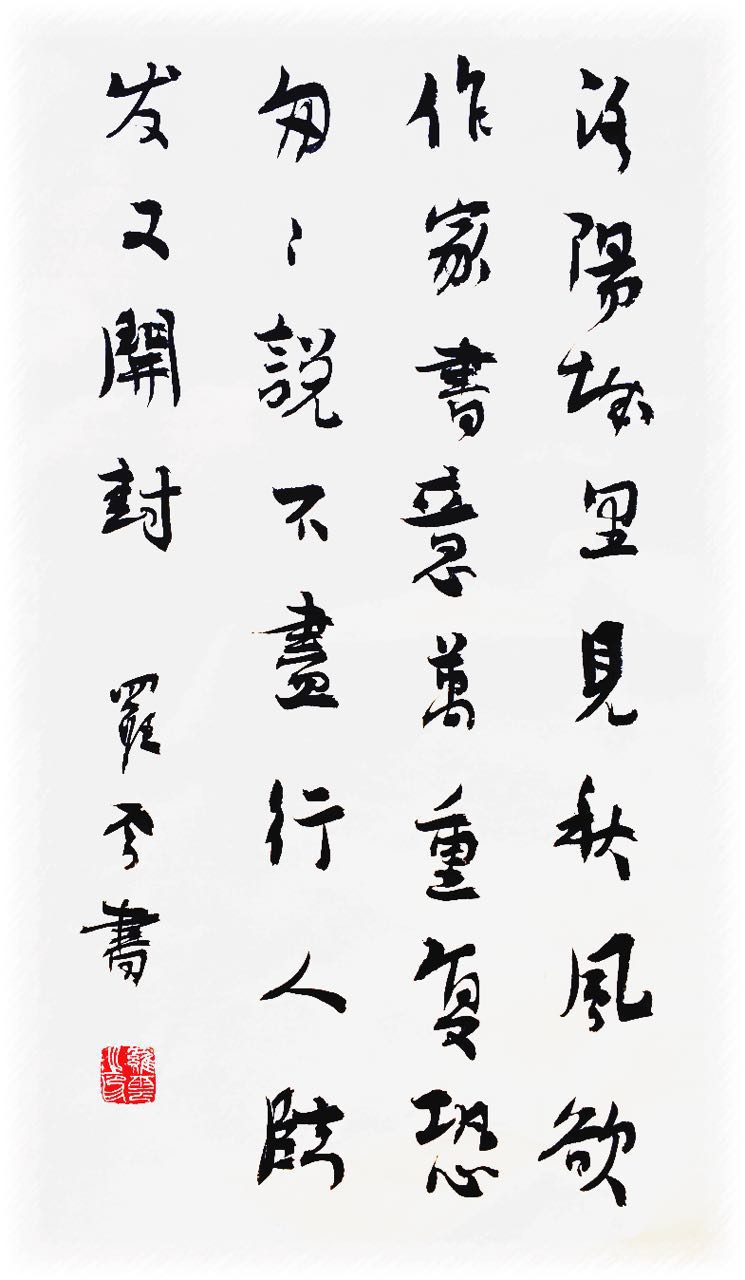 洛陽城里見秋風欲
作家書意萬重复恐
匆〻說不盡行人臨
发又開封 羅雲書
羅雲之印